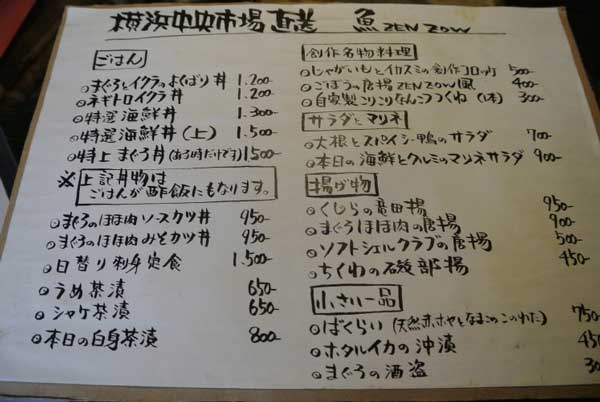 横浜中央市場直送 魚 ZEN ZOW
ごはん
まぐろとイクラのよくばり丼 1.200
ネギトロイクラ丼 1.200-
特選海鮮丼 1.300-
特選海鮮丼(上) 1.500-
特上まぐろ丼(ある時だけです) 1,500
※ 上記丼物は
ごはんが酢飯にもなります。
まぐろのほほ肉ソースカツ丼 950-
まぐろのほほ肉みそカツ丼 950-
日替り刺身定食 1.500-
うめ茶漬 650-
シャケ茶漬 650-
本日の白身茶漬 800-
創作名物料理
じゃがいもとイカスミの創作コロッケ 500-
ごぼうの唐揚ZENZOW風 400-
自家製コリコリなんこつつくね(1本) 300-
サラダとマリネ
大根とスパイシー鴨のサラダ 700-
本日の海鮮とクルミのマリネサラダ 900-
揚げ物
くじらの竜田揚 950-
まぐろほほ肉の唐揚 900-
ソフトシェルクラブの唐揚 500-
ちくわの磯部揚 450-
小さい一品
ばくらい(天然赤ホヤとなまこのこのわた) 750
ホタルイカの沖漬
まぐろの酒盗